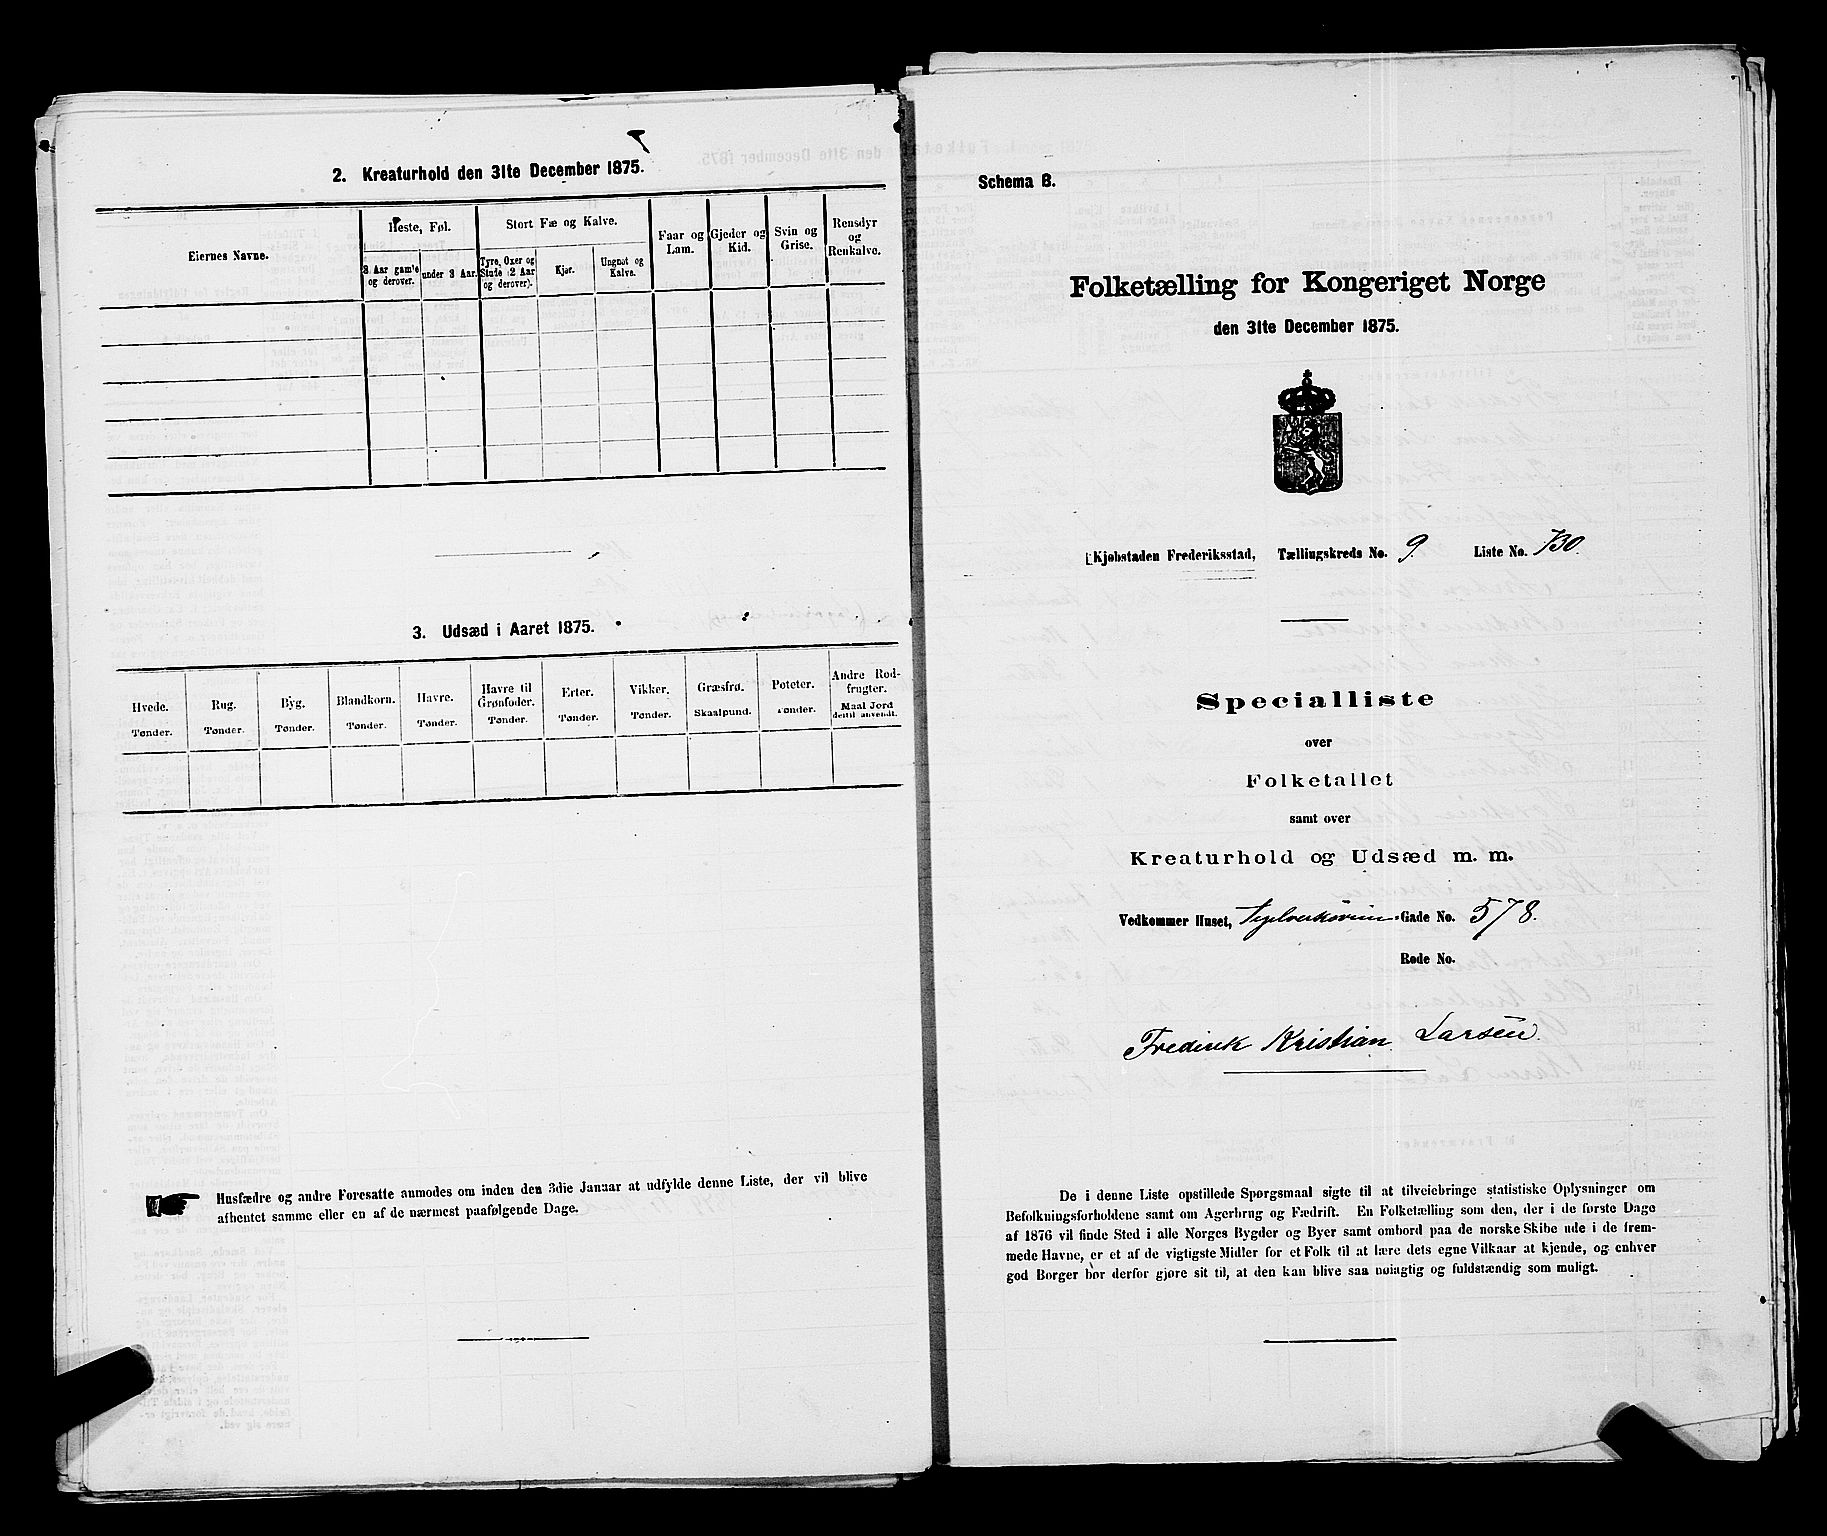 2. Kreaturhold den 31te December 1875.
Eiernes Navne.
Heste, Føl.
3 Aar gamle og derover.
under 3 Aar.
Stort Fæ og Kalve.
Tyre, Oxer og Stude (2 Aar og derover).
Kjør.
Ungnøt og Kalve.
Faar og Lam.
Gjeder og Kid.
Svin og Grise.
Rensdyr og Renkalve.
3. Udsæd i Aaret 1875.
Hvede.
Tønder.
Rug.
Tønder.
Byg.
Tønder.
Blandkorn.
Tønder.
Havre.
Tønder.
Havre til Grønfoder.
Tønder.
Erter.
Tønder.
Vikker.
Tønder.
Græsfrø.
Skaalpund.
Poteter.
Tønder.
Andre Rodfrugter.
Maal Jord dertil anvendt.
Husfædre og andre Foresatte anmodes om inden den 3die Januar at udfylde denne Liste, der vil blive
afhentet samme eller en af de nærmest paafølgende Dage.
Schema B.
Folketælling for Kongeriget Norge
den 31te December 1875.
Kjøbstaden Frederiksstad, Tællingskreds No. 9. Liste No. 130.
Specialliste
over
Folketallet
samt over
Kreaturhold og Udsæd m. m.
Vedkommer Huset, Gade No. 578.
Rode No.
Fredirik Kristian Larsen.
De i denne Liste opstillede Spørgsmaal sigte til at tilveiebringe statistiske Oplysninger om
Befolkningsforholdene samt om Agerbrug og Fædrift. En Folketælling som den, der i de første Dage
af 1876 vil finde Sted i alle Norges Bygder og Byer samt ombord paa de norske Skibe ude i de frem-
mede Havne, er et af de vigtigste Midler for et Folk til at lære dets egne Vilkaar at kjende, og enhver
god Borger bør derfor gjøre sit til, at den kan blive saa nøiagtig og fuldstændig som muligt.